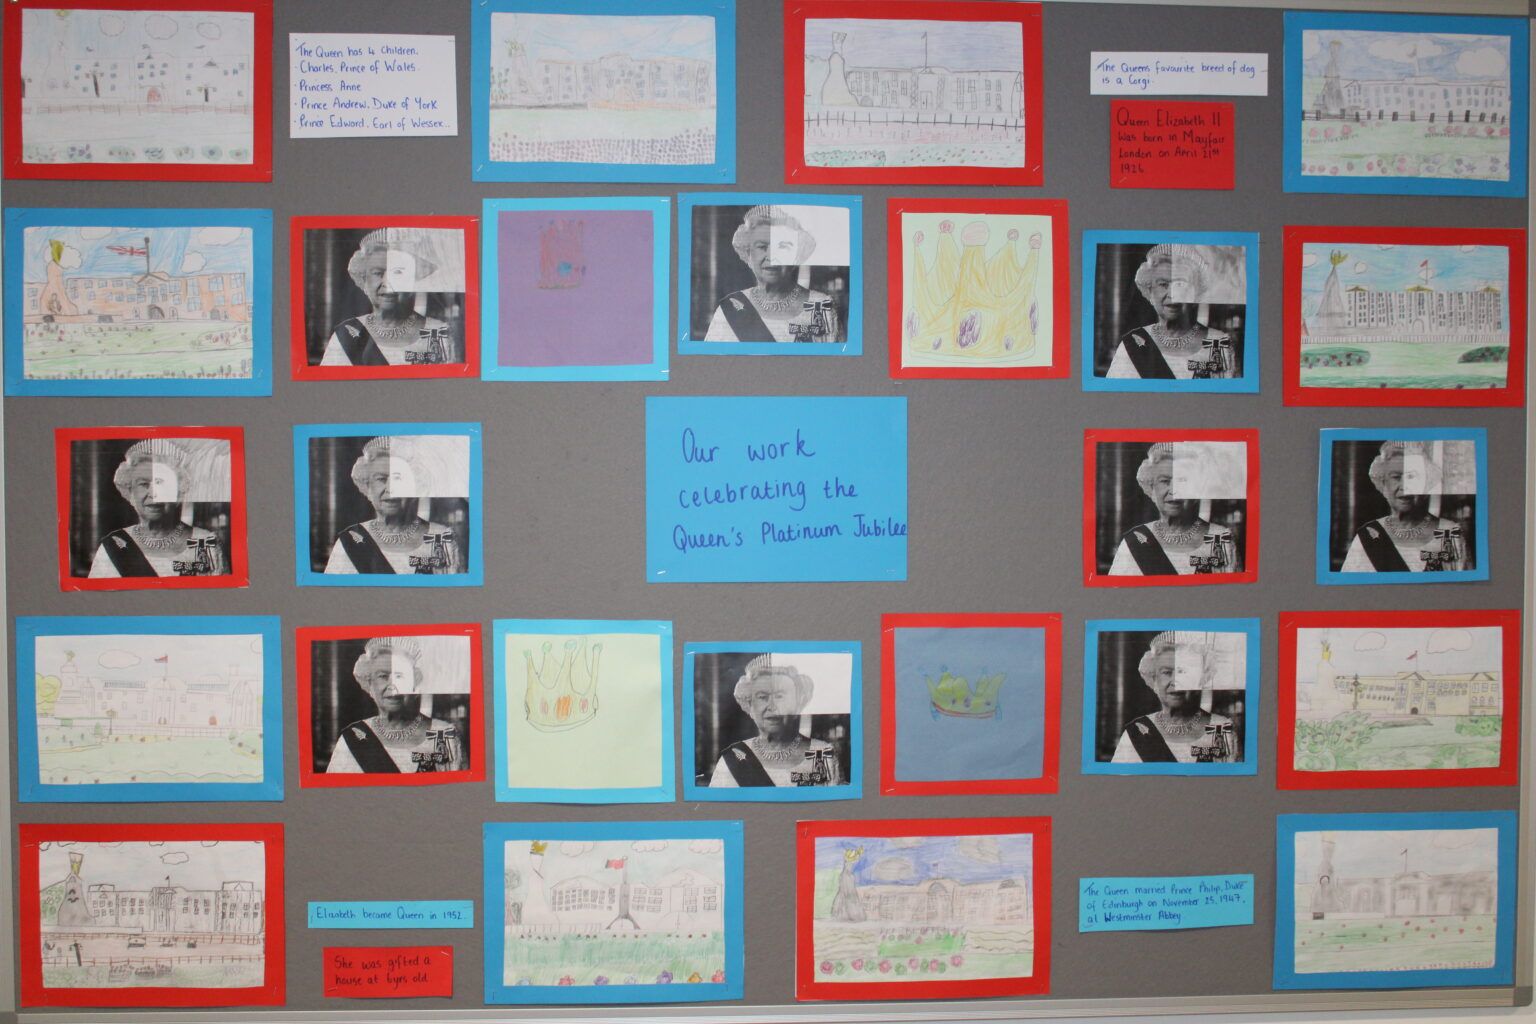 The Queen has 4 children.
· Charles, Prince of Wales.
· Princess Anne
· Prince Andrew, Duke of York
· Prince Edward, Earl of Wessex..
The Queens favourite breed of dog
is a Corgi.
Queen Elizabeth II
was born in Mayfair
London on April 21st
1926
Our work
celebrating the
Queen's Platinum Jubilee
Elizabeth became Queen in 1952.
She was gifted a
house at 6yrs old.
The Queen married Prince Philip, Duke
of Edinburgh on November 25, 1947,
at Westminster Abbey